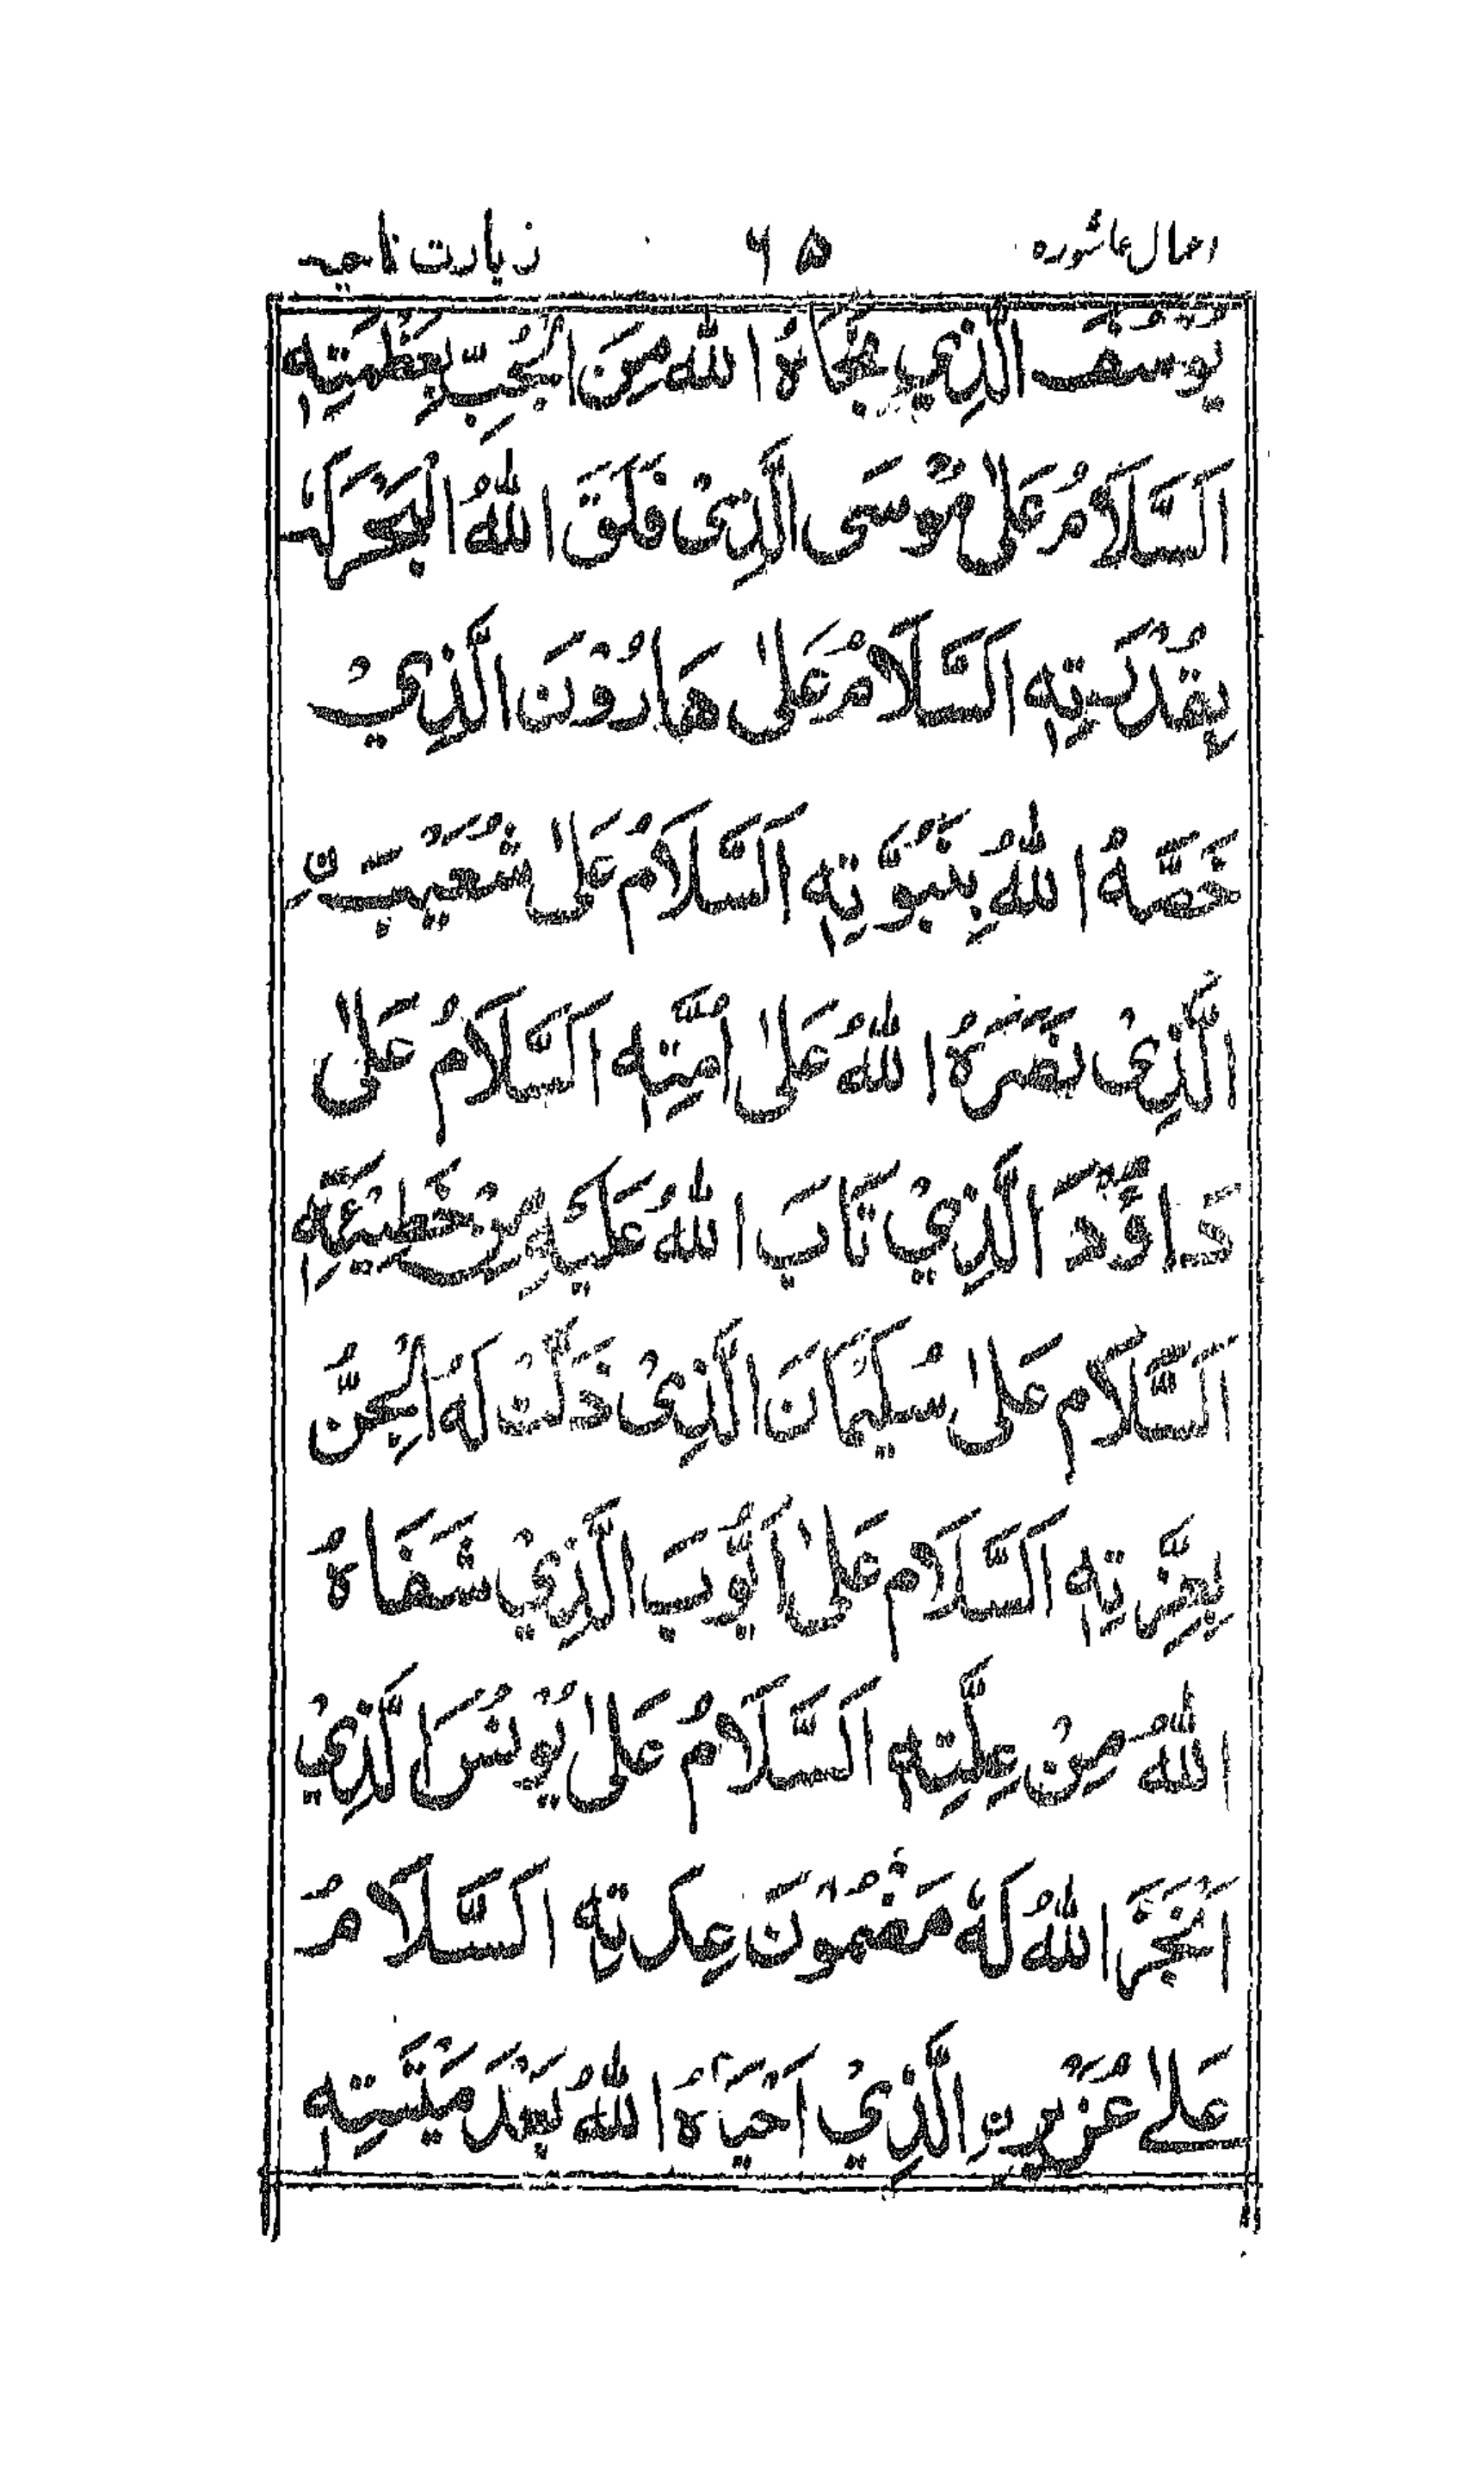 اعمال عاشوره ۶۵ زیارت ناحیہ
يُوْسُفَ الَّذِيْ نَجَّاهُ اللهُ مِنَ الْجُبِّ بِعَظْمَتِهٖ
اَلسَّلَامُ عَلٰى مُوْسَى الَّذِىْ فَلَقَ اللهُ الْبَحْرَ لَهٗ
بِقُدْرَتِهٖ اَلسَّلَامُ عَلٰى هَارُوْنَ الَّذِيْ
خَصَّهُ اللهُ بِنُبُوَّتِهٖ اَلسَّلَامُ عَلٰى شُعَيْبَ نِ
الَّذِىْ نَصَرَهُ اللهُ عَلٰى اُمَّتِهٖ اَلسَّلَامُ عَلٰى
دَاوٗدَ الَّذِيْ تَابَ اللهُ عَلَيْهِ مِنْ خَطِيْئَتِهٖ
اَلسَّلَام عَلٰى سُلَيْمَانَ الَّذِىْ ذَلَّتْ لَهُ الْجِنُّ
بِعِزَّتِهٖ اَلسَّلَام عَلٰى اَيُّوْبَ الَّذِيْ شَفَاهُ
اللهُ مِنْ عِلَّتِهٖ اَلسَّلَامُ عَلٰى يُوْنُسَ الَّذِيْ
اَنْجَزَ اللهُ لَهٗ مَضْمُوْنَ عِدَتِهٖ اَلسَّلَامُ
عَلٰے عُزَيْرِنِ الَّذِيْ اَحْيَاهُ اللهُ بَعْدَ مَيْتَتِهٖ